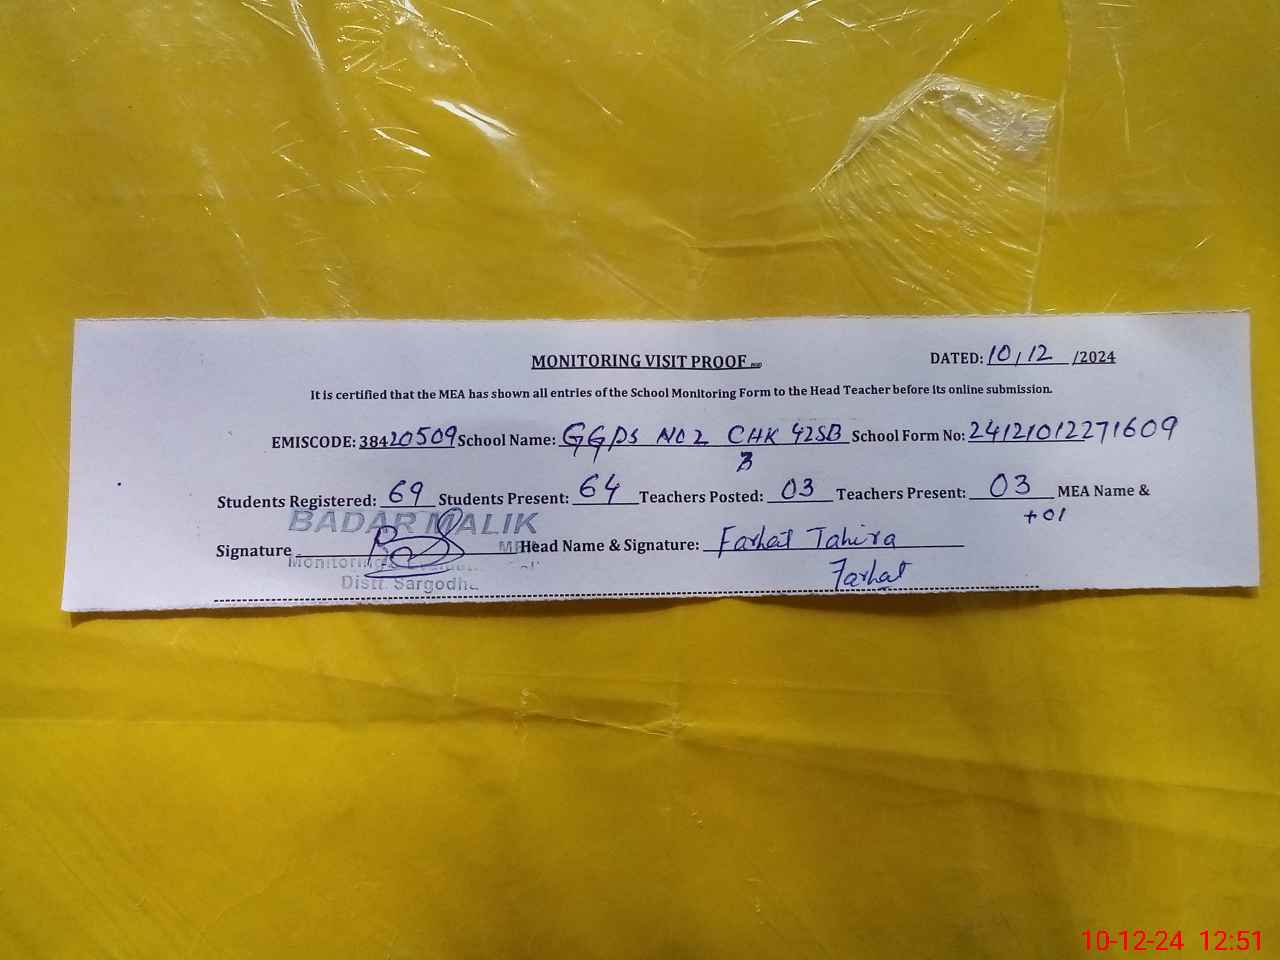 MONITORING VISIT PROOF
DATED: 10/12 /2024
It is certified that the MEA has shown all entries of the School Monitoring Form to the Head Teacher before its online submission.
EMISCODE: 38420509 School Name: GGPS NO 2 CHK 42SB School Form No: 24121012271609
B
Students Registered: 69 Students Present: 64 Teachers Posted: 03 Teachers Present: 03 MEA Name &
+01
BADAR MALIK
Signature Head Name & Signature: Farhat Tahira
Monitoring
Farhat
Distt. Sargodha
10-12-24 12:51